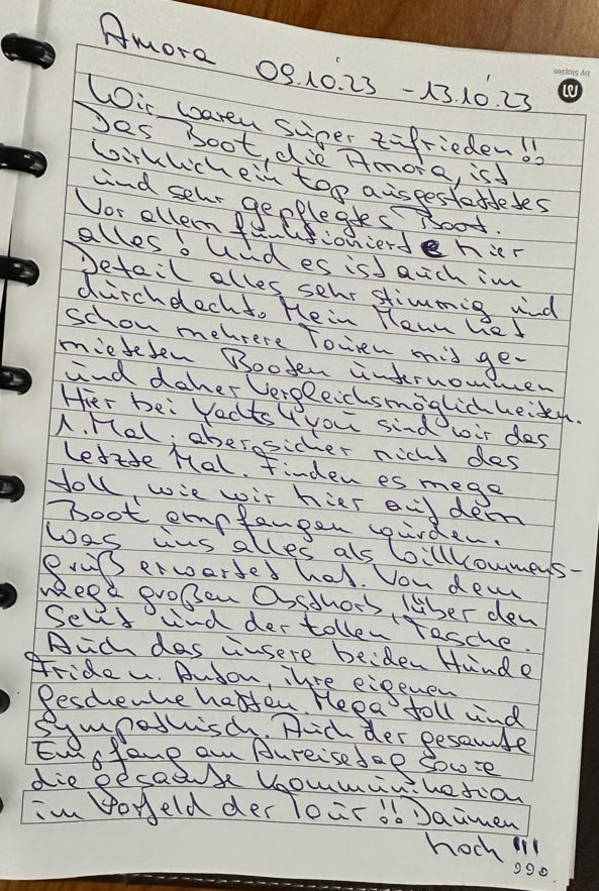 by Staples
Amora 09.10.23 - 13.10.23
Wir waren super zufrieden!!
Das Boot, die Amora, ist
wirklich ein top ausgestattetes
und sehr gepflegtes Boot.
Vor allem funktionierte hier
alles! Und es ist auch im
Detail alles sehr stimmig und
durchdacht. Mein Mann hat
schon mehrere Touren mit ge-
mieteten Booten unternommen
und daher Vergleichsmöglichkeiten.
Hier bei Yachts4you sind wir das
1. Mal, aber sicher nicht das
letzte Mal. Finden es mega
toll, wie wir hier auf dem
Boot empfangen wurden.
Was uns alles als Willkommens-
gruß erwartet hat. Von dem
mega großen Obstkorb, über den
Sekt und der tollen Tasche.
Auch das unsere beiden Hunde
Frida u. Anton, ihre eigenen
Geschenke hatten. Mega toll und
sympathisch. Auch der gesamte
Empfang am Anreisetag sowie
die gesamte Kommunikation
im Vorfeld der Tour!! Daumen
hoch !!!